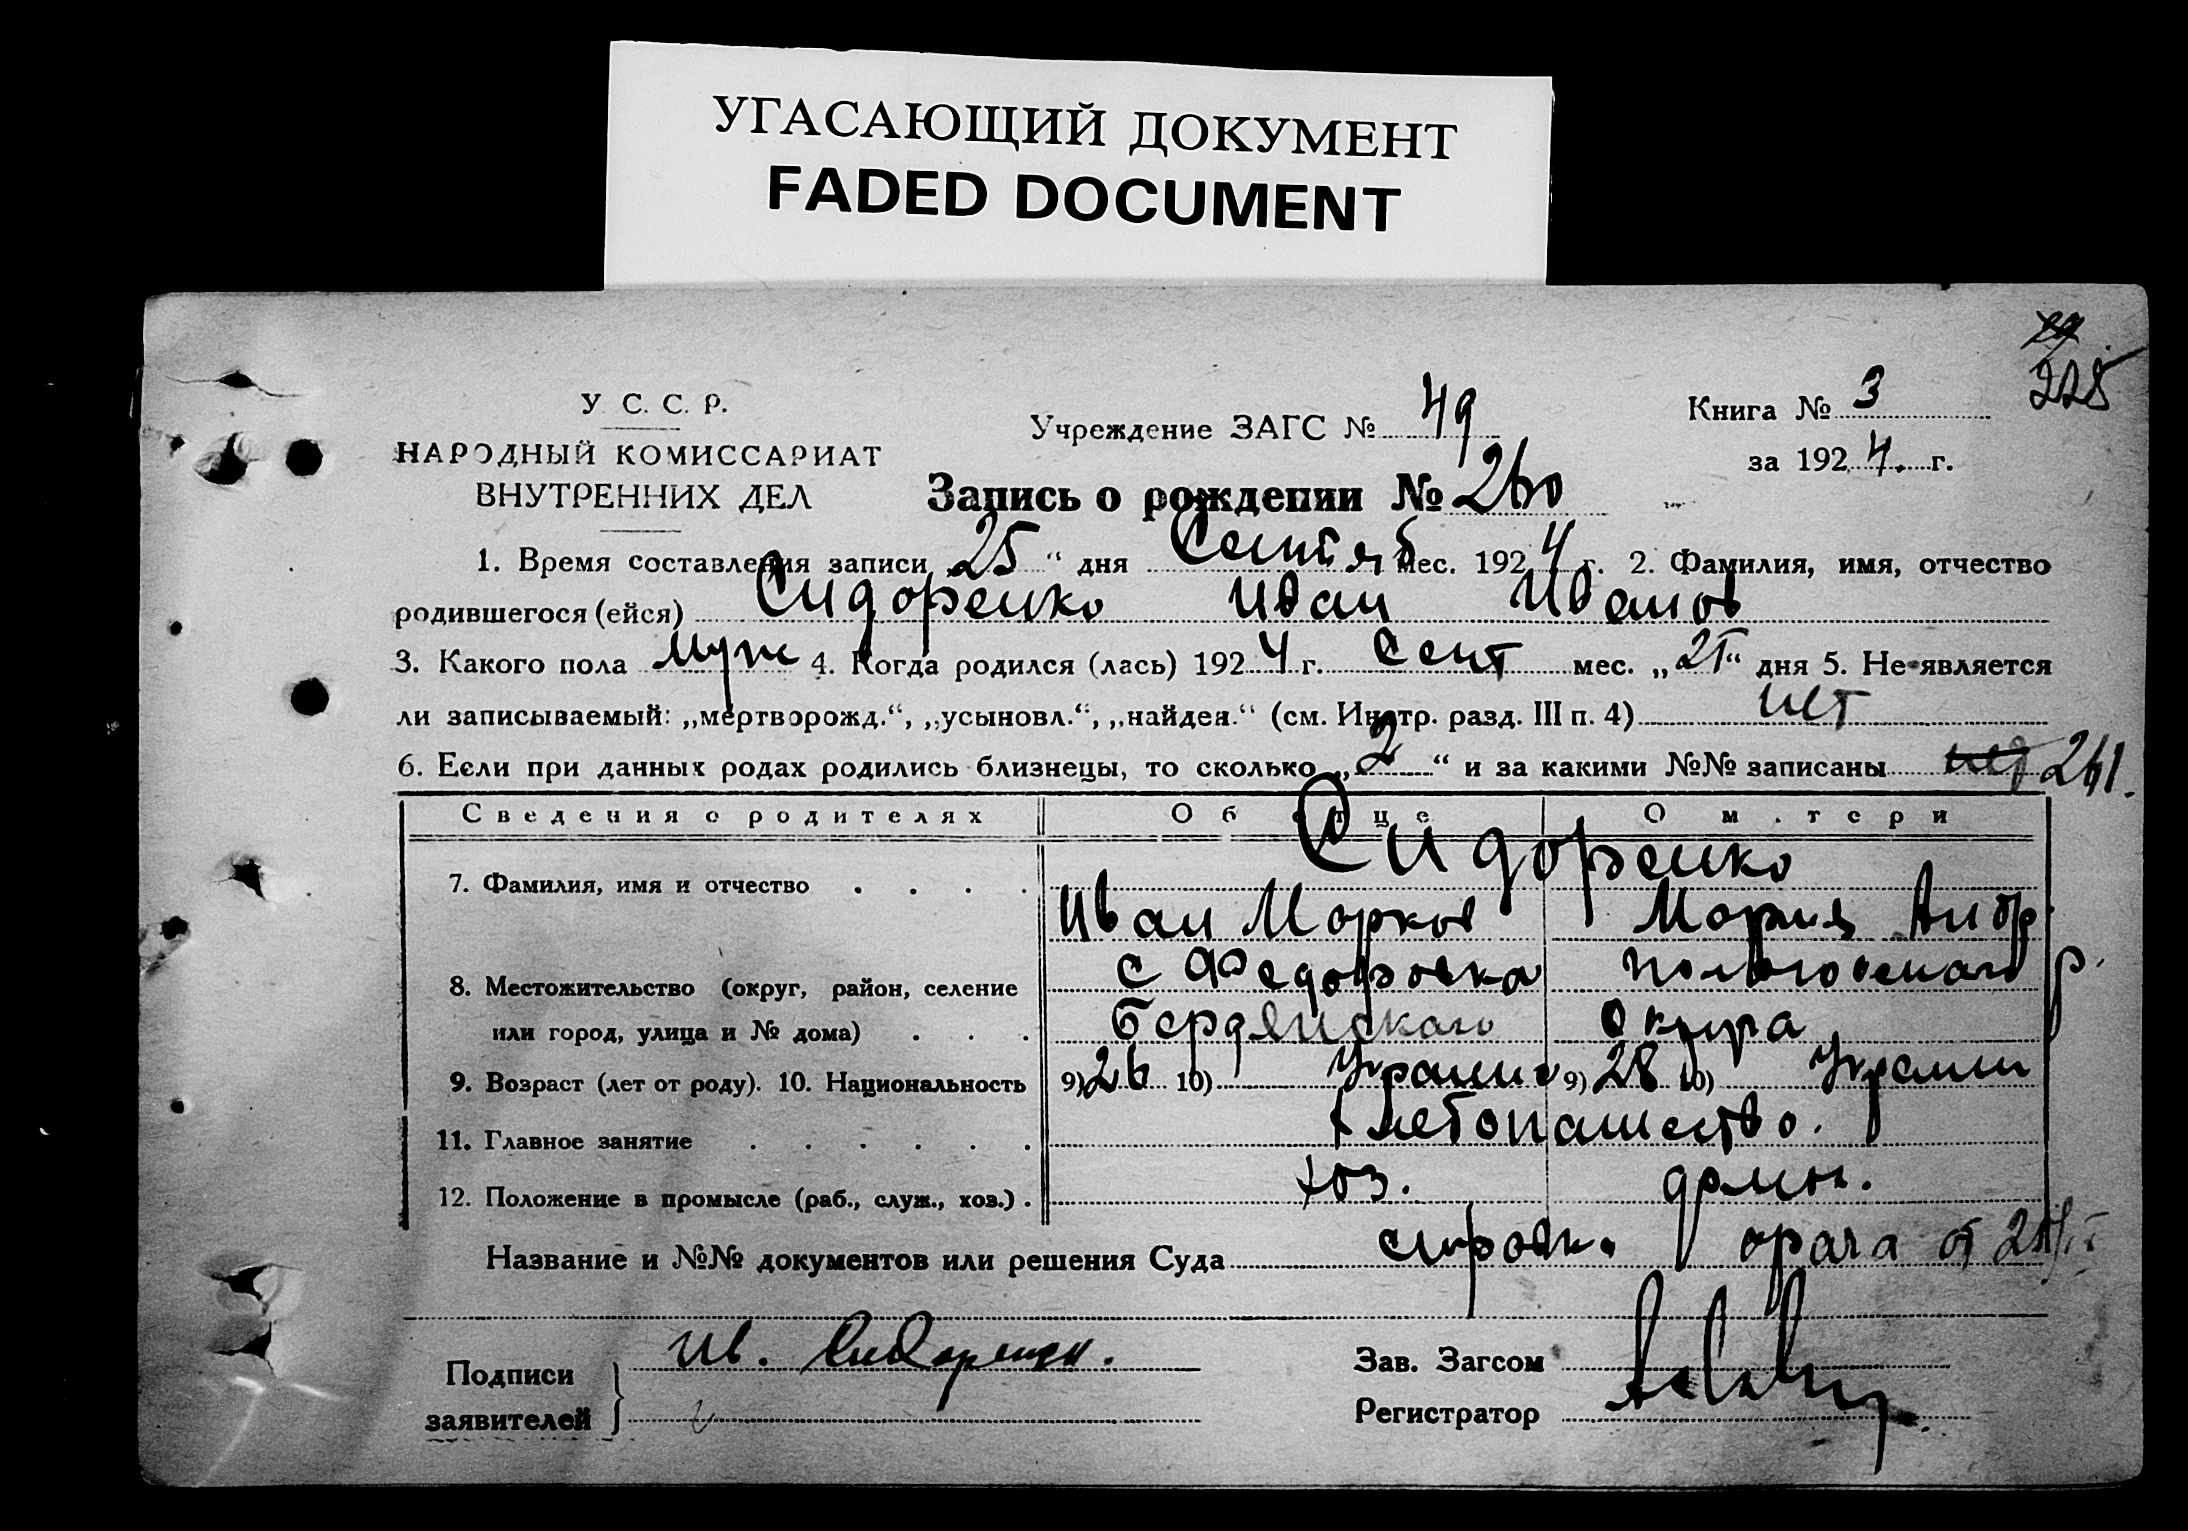 УГАСАЮЩИЙ ДОКУМЕНТ
FADED DOCUMENT
228
У. С. С. Р.
НАРОДНЫЙ КОМИССАРИАТ
ВНУТРЕННИХ ДЕЛ
Учреждение ЗАГС № 49
Книга № 3
за 1924. г.
Запись о рождении № 260
1. Время составления записи 25 “ дня Сентяб мес. 1924 г. 2. Фамилия, имя, отчество
родившегося (ейся) Сидоренко Иван Иванов
3. Какого пола муж 4. Когда родился (лась) 1924 г. Сент мес. „21“ дня 5. Не является
ли записываемый: „мертворожд.“, „усыновл.“, „найден.“ (см. Инстр. разд. III п. 4) нет
6. Если при данных родах родились близнецы, то сколько „2“ и за какими №№ записаны 261.
Сведения о родителях Об отце О матери
Сидоренко
7. Фамилия, имя и отчество . . . .
Иван Марков Мария Андр
8. Местожительство (округ, район, селение с Федоровка Пологовскаго р.
или город, улица и № дома) . . . Бердянскаго Округа
9. Возраст (лет от роду). 10. Национальность 9) 26 10) Украинс 9) 28 10) Украин
11. Главное занятие . . . . . . Хлебопашество.
12. Положение в промысле (раб., служ., хоз.) . хоз. домох.
Название и №№ документов или решения Суда справка врача от
Подписи заявителей Ив. Сидоренко.
Зав. Загсом
Регистратор